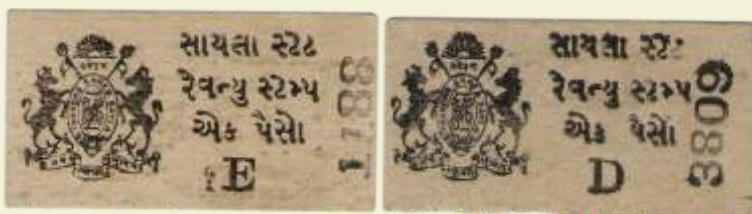 સાયલા સ્ટેટ
રેવન્યુ સ્ટેમ્પ
એક પૈસો
E
1188
સાયલા સ્ટેટ
રેવન્યુ સ્ટેમ્પ
એક પૈસો
D
3809